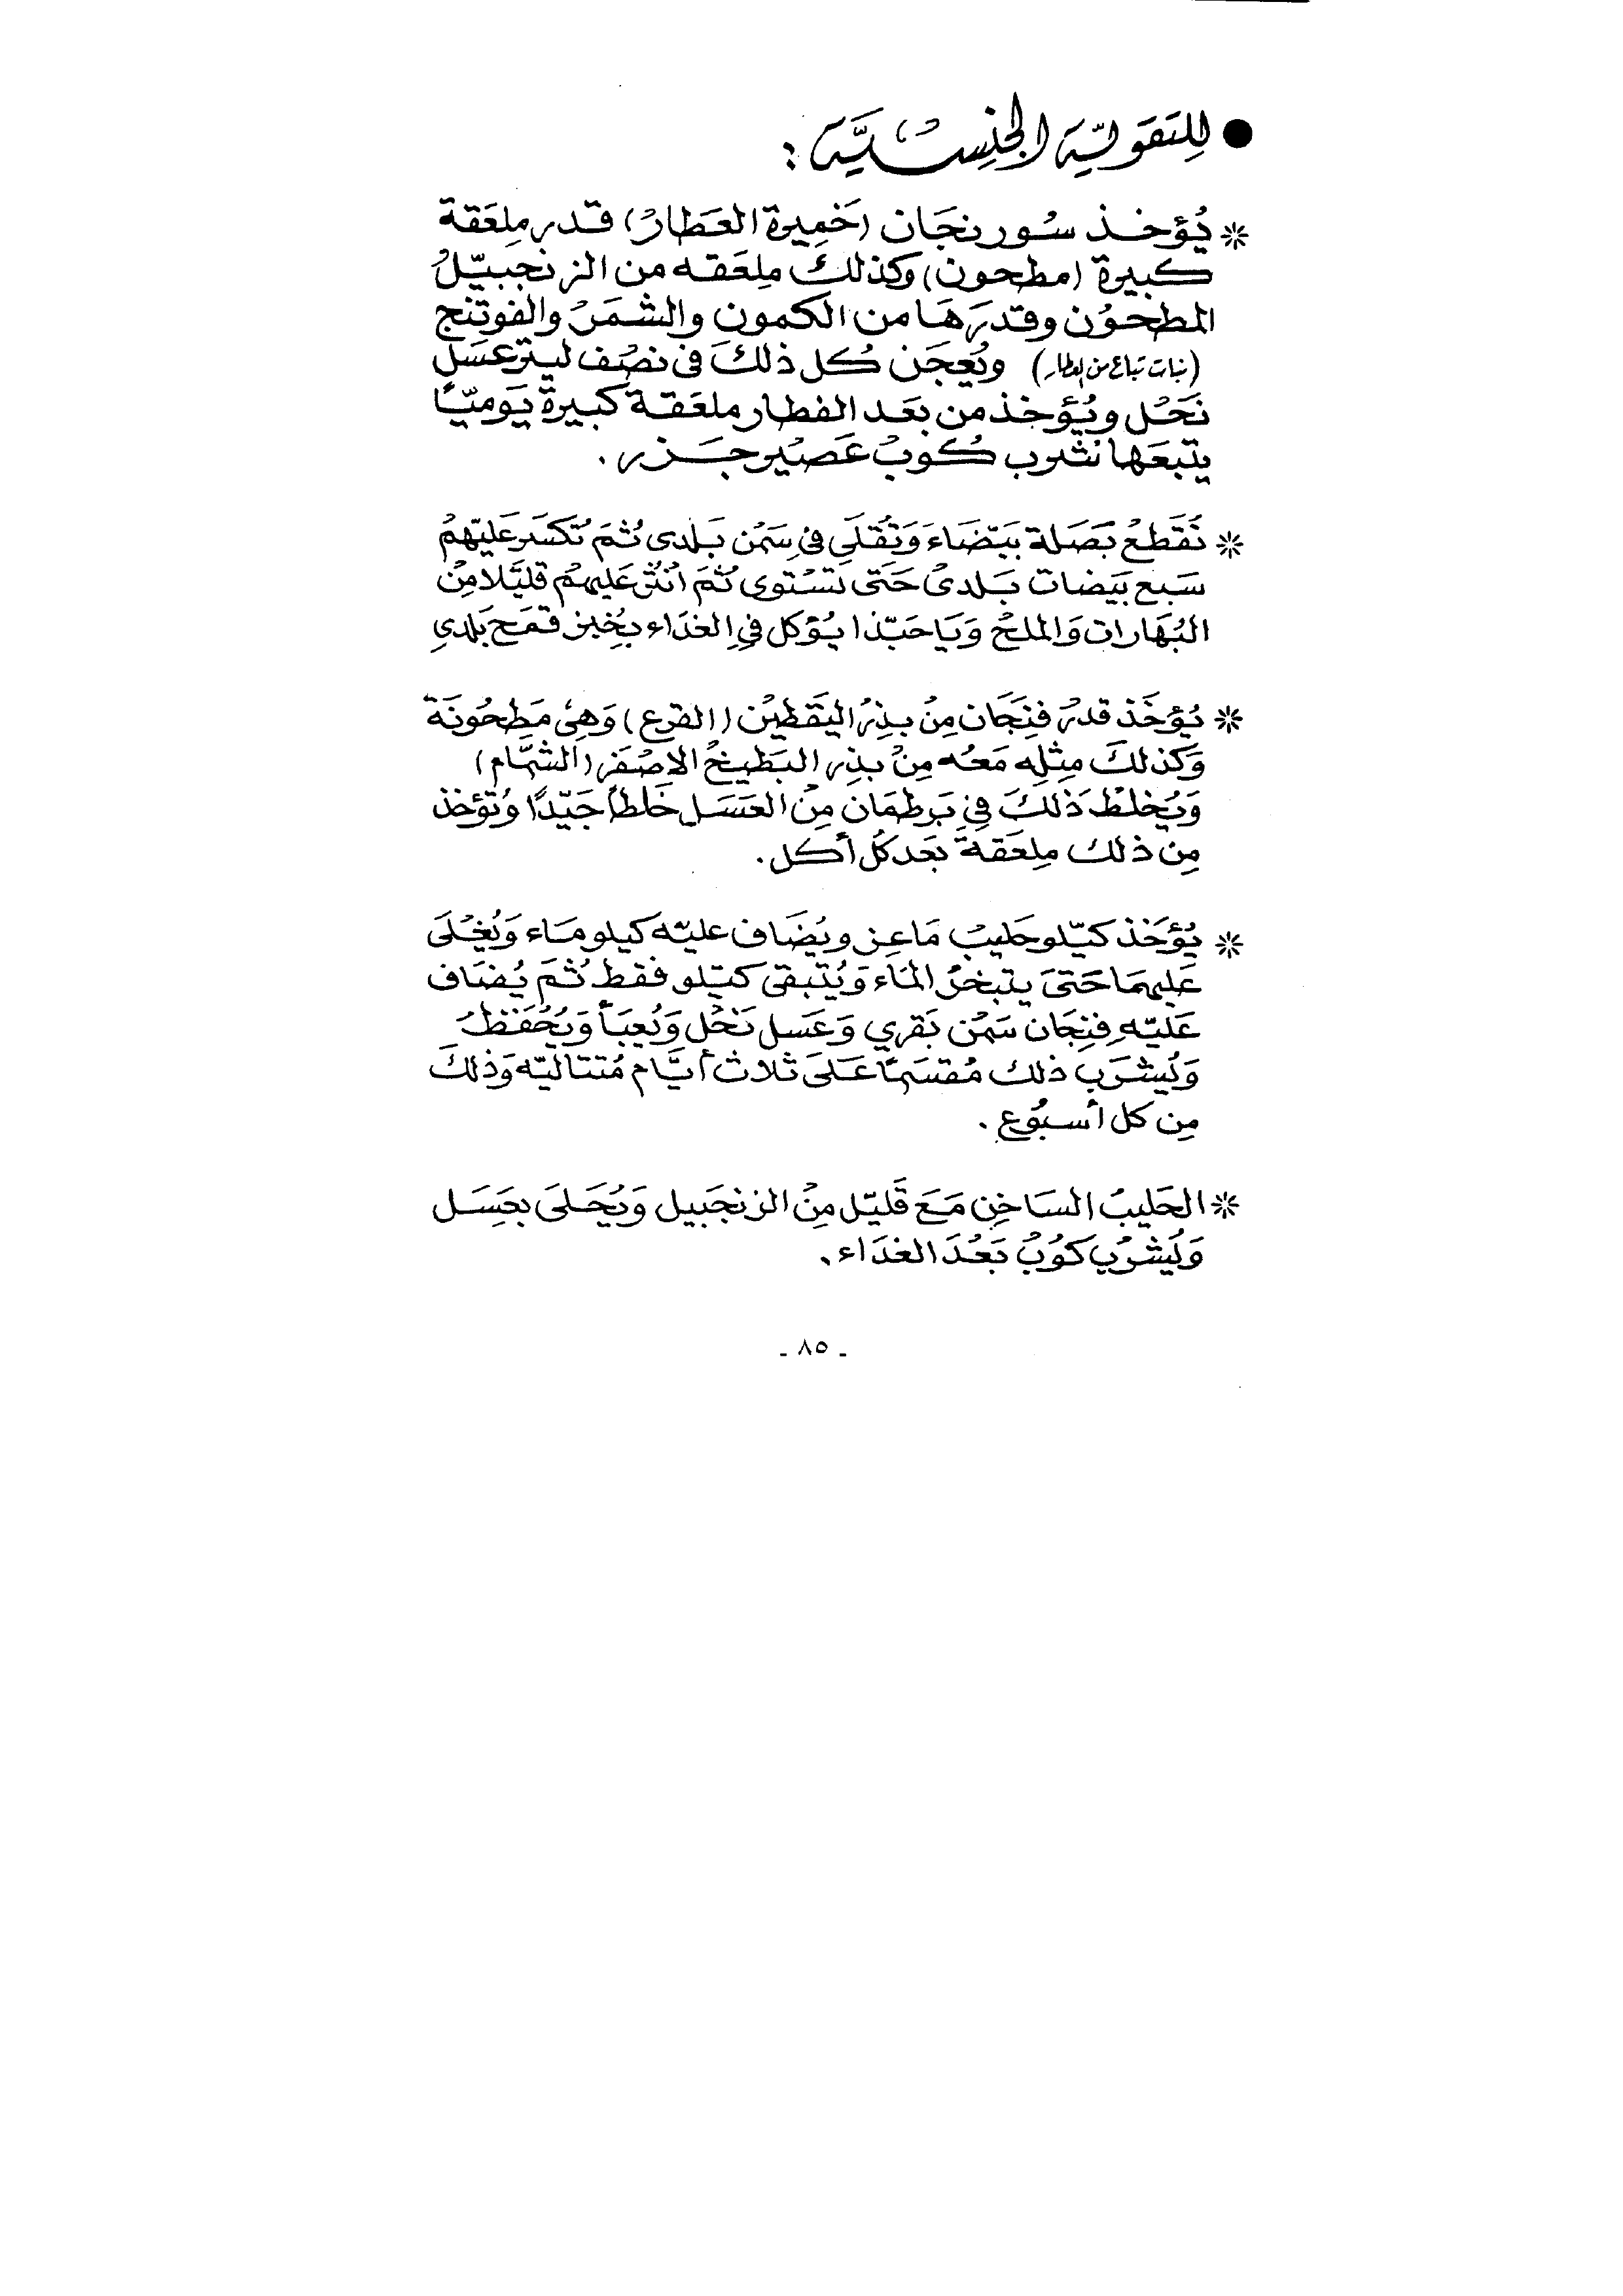 ● للتقوية الجنسية :
* يؤخذ سورنجان (خميرة العطار) قدر ملعقة
كبيرة (مطحون) وكذلك ملعقه من الزنجبيل
المطحون وقدرها من الكمون والشمر والفوتنج
(نبات تباع من العطار) ويعجن كل ذلك فى نصف ليتر عسل
نحل ويؤخذ من بعد الفطار ملعقة كبيرة يوميًا
يتبعها نشرب كوب عصير جزر .
* نقطع بصلة بيضاء وتقلى فى سمن بلدى ثم تكسر عليهم
سبع بيضات بلدى حتى تستوى ثم انثر عليهم قليلا من
البهارات والملح ويا حبذا يؤكل في الغداء بخبز قمح بلدي
* يؤخذ قدر فنجان من بذر اليقطين (القرع) وهى مطحونة
وكذلك مثله معه من بذر البطيخ الاصفر (الشمام)
ويخلط ذلك في برطمان من العسل خلطًا جيدًا وتؤخذ
من ذلك ملعقة بعد كل أكل .
* يؤخذ كيلو حليب ماعز ويضاف عليه كيلو ماء ويغلى
عليهما حتى يتبخر الماء ويتبقى كيلو فقط ثم يضاف
عليه فنجان سمن بقري وعسل نحل ويعبأ ويحفظ
ويشرب ذلك مقسمًا على ثلاث أيام متتاليه وذلك
من كل أسبوع .
* الحليب الساخن مع قليل من الزنجبيل ويحلى بعسل
ويشرب كوب بعد الغداء .
- ٨٥ -